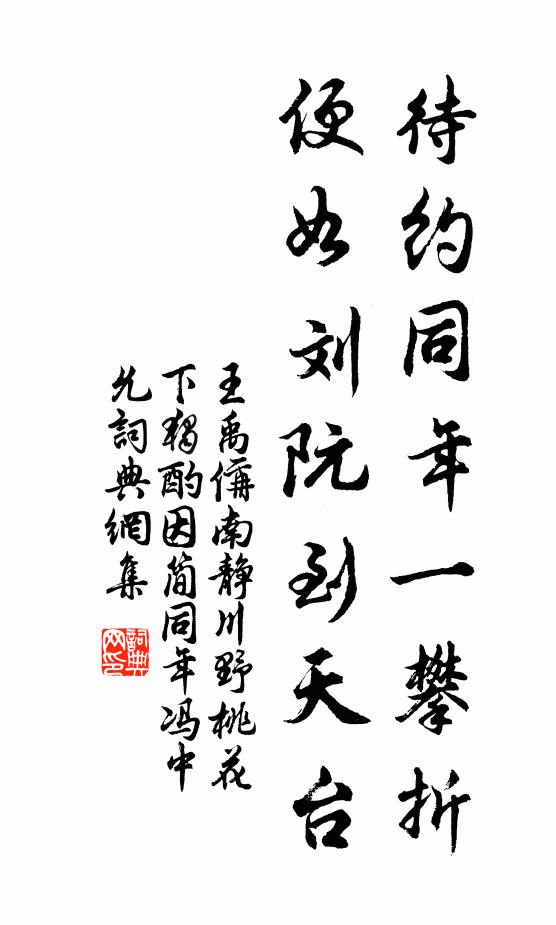 待约同年一攀折
便如刘阮到天台
王禹偁南静川野桃花
下独酌因简同年冯中
允詞典網集
詞典网印